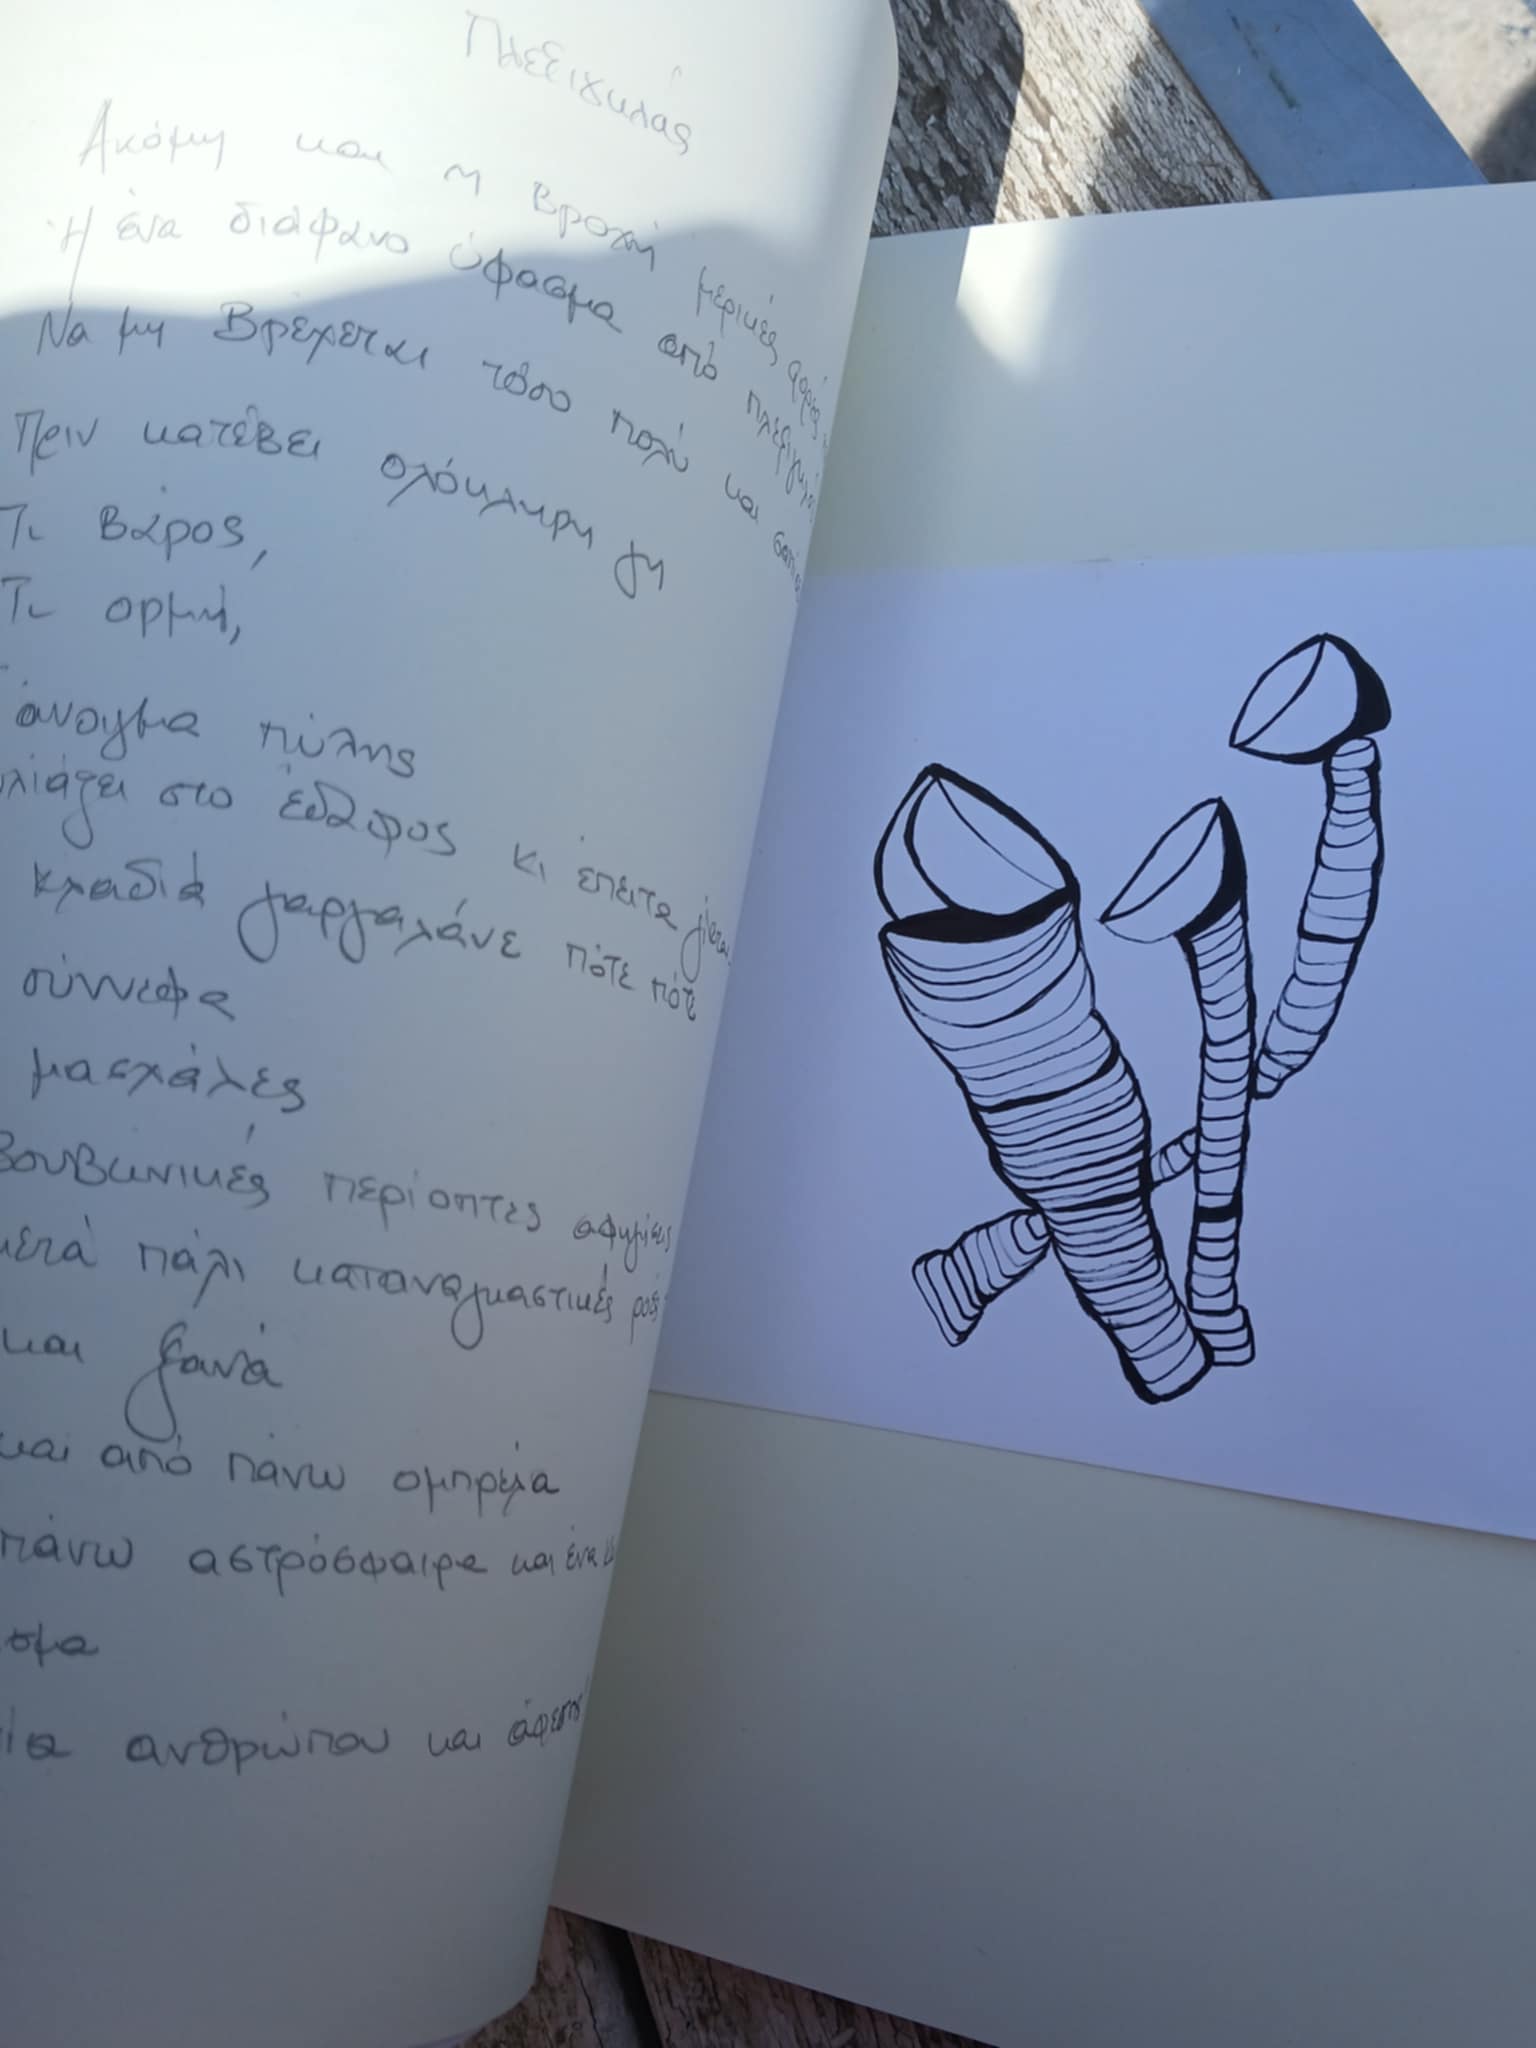 Πλεξιγκλάς
Ακόμη και η Βροχή μερικές φορές
Ή ένα διάφανο ύφασμα από πλεξιγκλά
Να μη Βρέχεται τόσο πολύ και
Πριν κατέβει ολόκληρη γη
Τι Βάρος,
Τι ορμή,
άνοιγμα πύλης
λιάζει στο έδαφος κι έπειτα γίνεται
κλαδιά γαργαλάνε πότε πότε
σύννεφα
μασχάλες
Βουβωνικές περίοπτες αφηγήσεις
μετά πάλι καταναγκαστικές ροές
και ξανά
και από πάνω ομπρέλα
πάνω αστρόσφαιρα και ένα
σμα
ία ανθρώπου και άφεσης